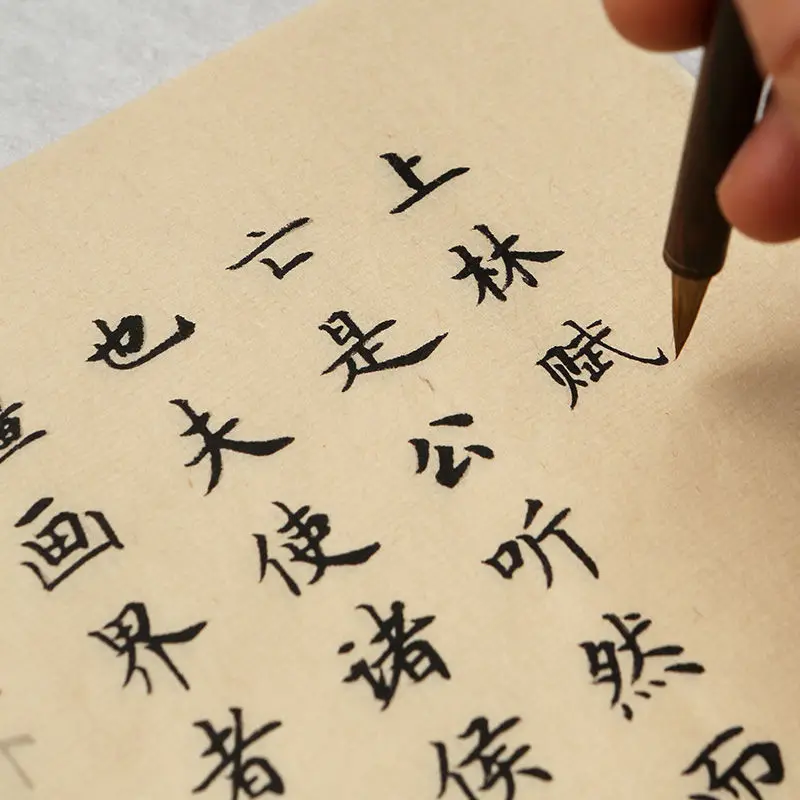 上林赋
亡是公听然而
也夫使诸侯
画界者